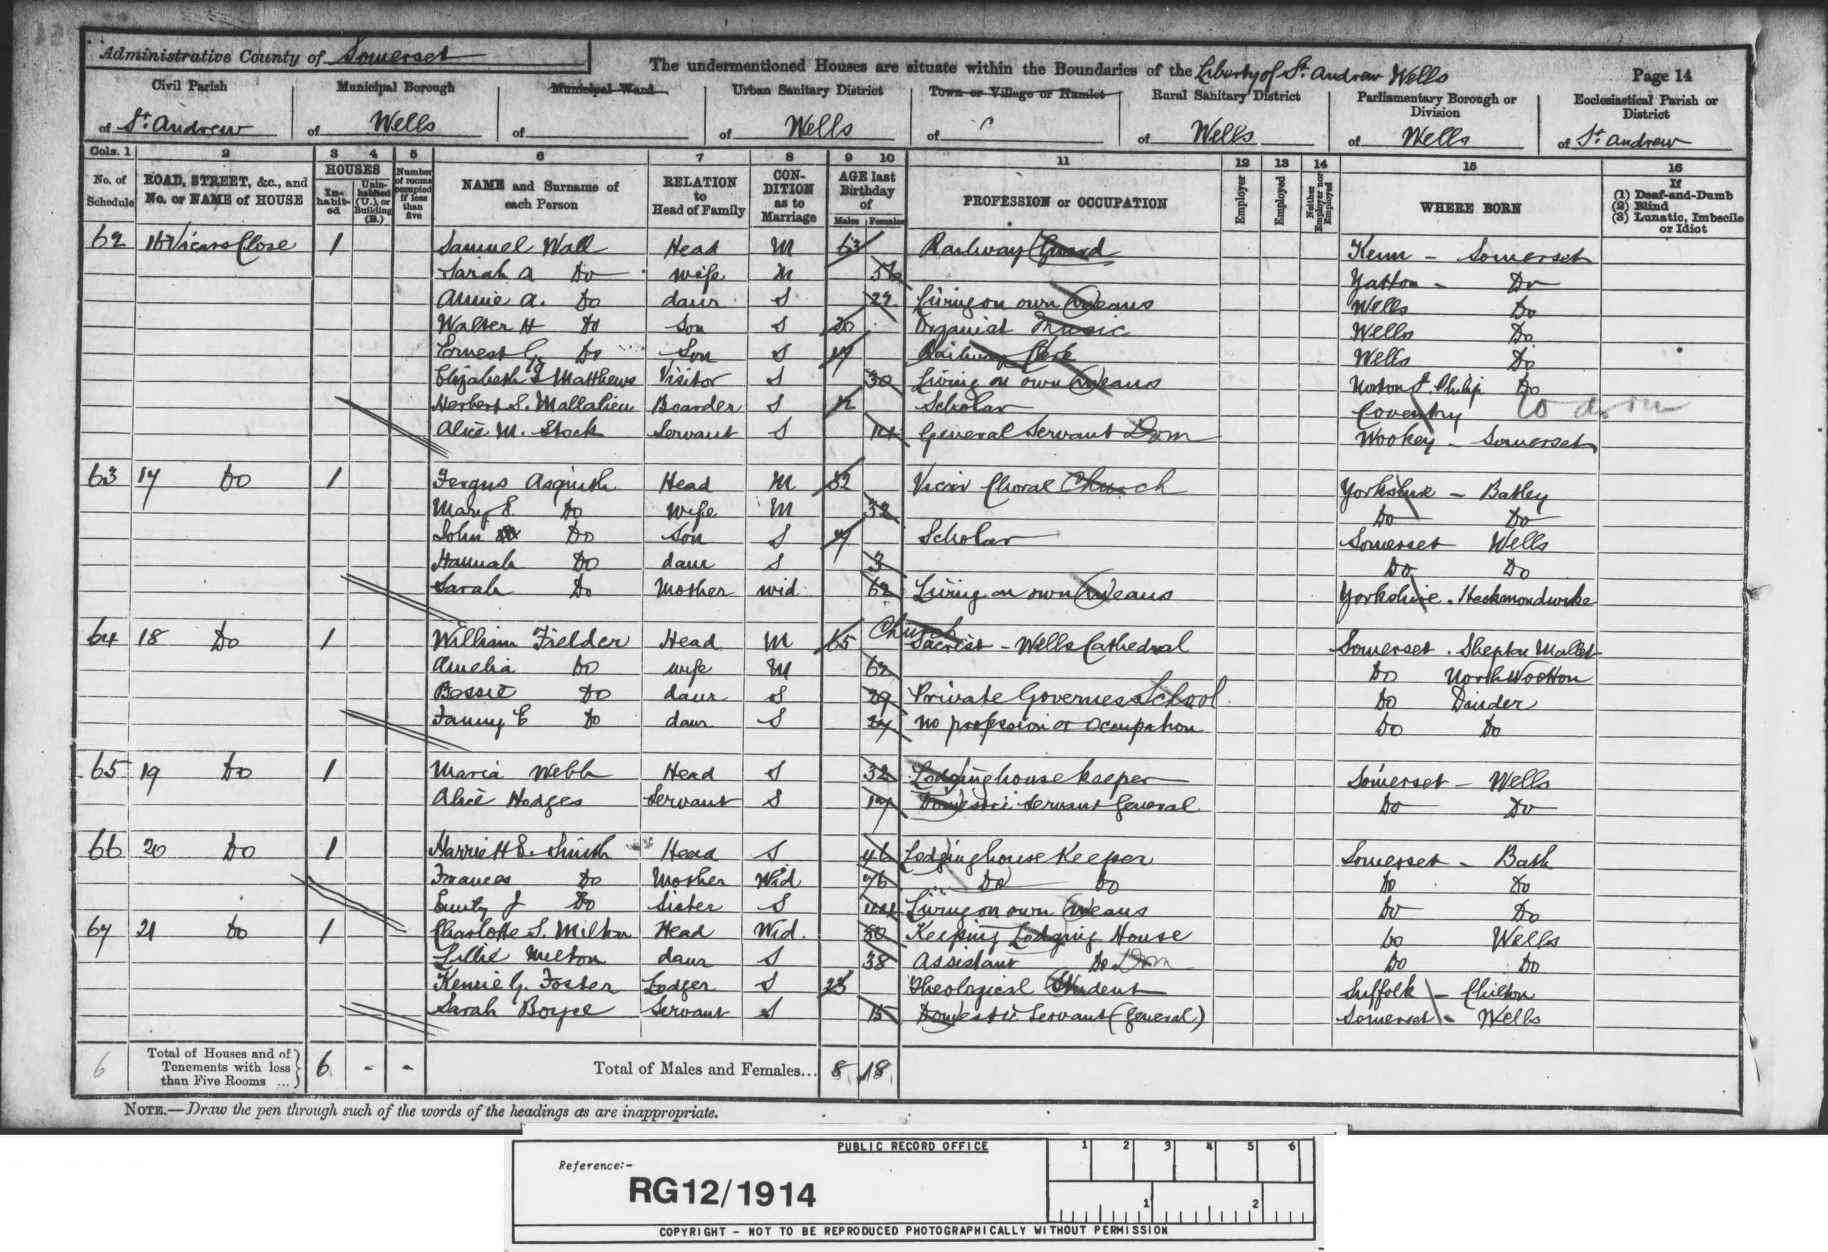 Administrative County of Somerset
The undermentioned Houses are situate within the Boundaries of the Liberty of St. Andrew Wells
Page 14
Civil Parish of St. Andrew
Municipal Borough of Wells
Municipal Ward of
Urban Sanitary District of Wells
Town or Village or Hamlet of
Rural Sanitary District of Wells
Parliamentary Borough or Division of Wells
Ecclesiastical Parish or District of St. Andrew
Cols. 1 2 3 4 5 6 7 8 9 10 11 12 13 14 15 16
No. of Schedule
ROAD, STREET, &c., and No. or NAME of HOUSE
HOUSES
Inhabited
Uninhabited (U.), or Building (B.)
Number of rooms occupied if less than five
NAME and Surname of each Person
RELATION to Head of Family
CONDITION as to Marriage
AGE last Birthday of
Males Females
PROFESSION or OCCUPATION
Employer
Employed
Neither Employer nor Employed
WHERE BORN
If (1) Deaf-and-Dumb (2) Blind (3) Lunatic, Imbecile or Idiot
62 Vicars Close 1 Samuel Wall Head M 63 Railway Guard Kenn - Somerset
Sarah A Do wife M Yatton - Do
Annie A. Do daur S 22 Living on own means Wells Do
Walter H Do Son S 20 Organist Music Wells Do
Ernest G. Do Son S 17 Railway Clerk Wells Do
Elizabeth S Matthews Visitor S 30 Living on own means Norton St. Philip Do
Herbert S. Mallalieu Boarder S 12 Scholar Coventry
Alice M. Stock Servant S 14 General Servant Dom Wookey - Somerset
63 17 Do 1 Fergus Asquith Head M 32 Vicar Choral Church Yorkshire - Batley
Mary E. Do wife M 32 Do Do
John Do son S 7 Scholar Somerset Wells
Hannah Do daur S 3 Do Do
Sarah Do Mother wid 62 Living on own means Yorkshire. Heckmondwike
Church
64 18 Do 1 William Fielder Head M 65 Sacrist - Wells Cathedral Somerset. Shepton Mallet
Amelia Do wife M 62 Do North Wootton
Bessie Do daur S 29 Private Governess School Do Dinder
Fanny E Do daur S 24 No profession or occupation Do Do
65 19 Do 1 Maria Webb Head S 32 Lodginghouse keeper Somerset - Wells
Alice Hodges Servant S 17 Domestic Servant General Do Do
66 20 Do 1 Harriett E. Smith Head S 46 Lodging house Keeper Somerset - Bath
Frances Do Mother Wid 76 Do Do Do Do
Emily J Do Sister S 44 Living on own means Do Do
67 21 Do 1 Charlotte S. Milton Head Wid. Keeping Lodging House Do Wells
Lillie Milton daur S 38 Assistant Do Dom Do Do
G. Foster Lodger S 23 Theological Student Suffolk - Chilton
Sarah Boyce Servant S 15 Domestic Servant (General) Somerset - Wells
6 Total of Houses and of Tenements with less than Five Rooms ... 6 - - Total of Males and Females... 8 18
NOTE.—Draw the pen through such of the words of the headings as are inappropriate.
PUBLIC RECORD OFFICE
1 2 3 4 5 6
Reference:-
RG12/1914
1 2
COPYRIGHT - NOT TO BE REPRODUCED PHOTOGRAPHICALLY WITHOUT PERMISSION